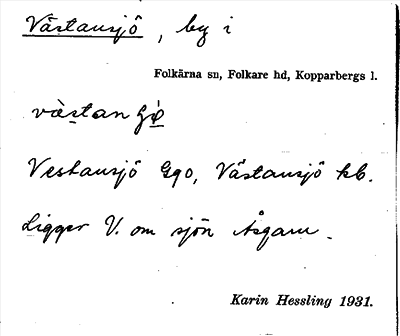 Västansjö, by i
Folkärna sn, Folkare hd, Kopparbergs l.
Vestansjö Gqo, Västansjö kb.
Ligger V. om sjön Åsgarn.
Karin Hessling 1931.